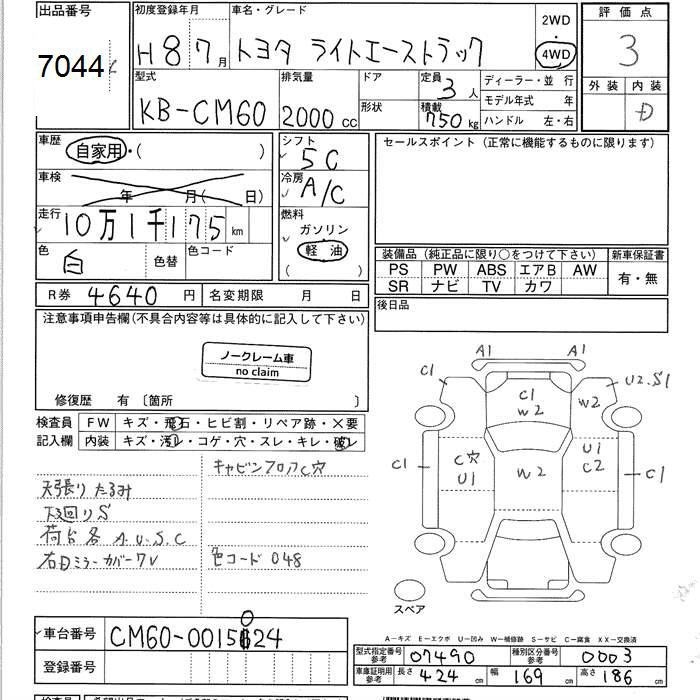 出品番号
7044
初度登録年月 車名・グレード
H 8 7 月 トヨタ ライトエーストラック
2WD
4WD
評価点
3
外装 内装
D
型式 排気量 ドア 定員 3 人 ディーラー・並 行
KB-CM60 2000 cc 形状 積載 750 kg モデル年式 年
ハンドル 左・右
車歴
自家用・( )
車検
年 月( 日)
走行
10万1千175 km
色 白 色替 色コード
シフト
5C
冷房
A/C
燃料
ガソリン
軽油
( )
セールスポイント (正常に機能するものに限ります)
装備品 (純正品に限り○をつけて下さい) 新車保証書
PS PW ABS エアB AW 有・無
SR ナビ TV カワ
R券 4640 円 名変期限 月 日
後日品
注意事項申告欄(不具合内容等は具体的に記入して下さい)
ノークレーム車
no claim
修復歴 有 〔箇所 〕
検査員 FW キズ・飛石・ヒビ割・リペア跡・×要
記入欄 内装 キズ・汚レ・コゲ・穴・スレ・キレ・破レ
キャビンフロアC穴
天張りたるみ
下廻りS
荷台各 A.U.S.C
右Dミラーカバーワレ
色コード 048
A1 A1
C1 U2.S1
C1 W2 W2
C1 C穴 U1 W2 U1 C2 C1
スペア
A-キズ E-エクボ U-凹み W-補修跡 S-サビ C-腐食 XX-交換済
車台番号 CM60-0015024
登録番号
型式指定番号 参考 07490 種別区分番号 参考 0003
車庫証明用 参考 長さ 424 cm 幅 169 cm 高さ 186 cm